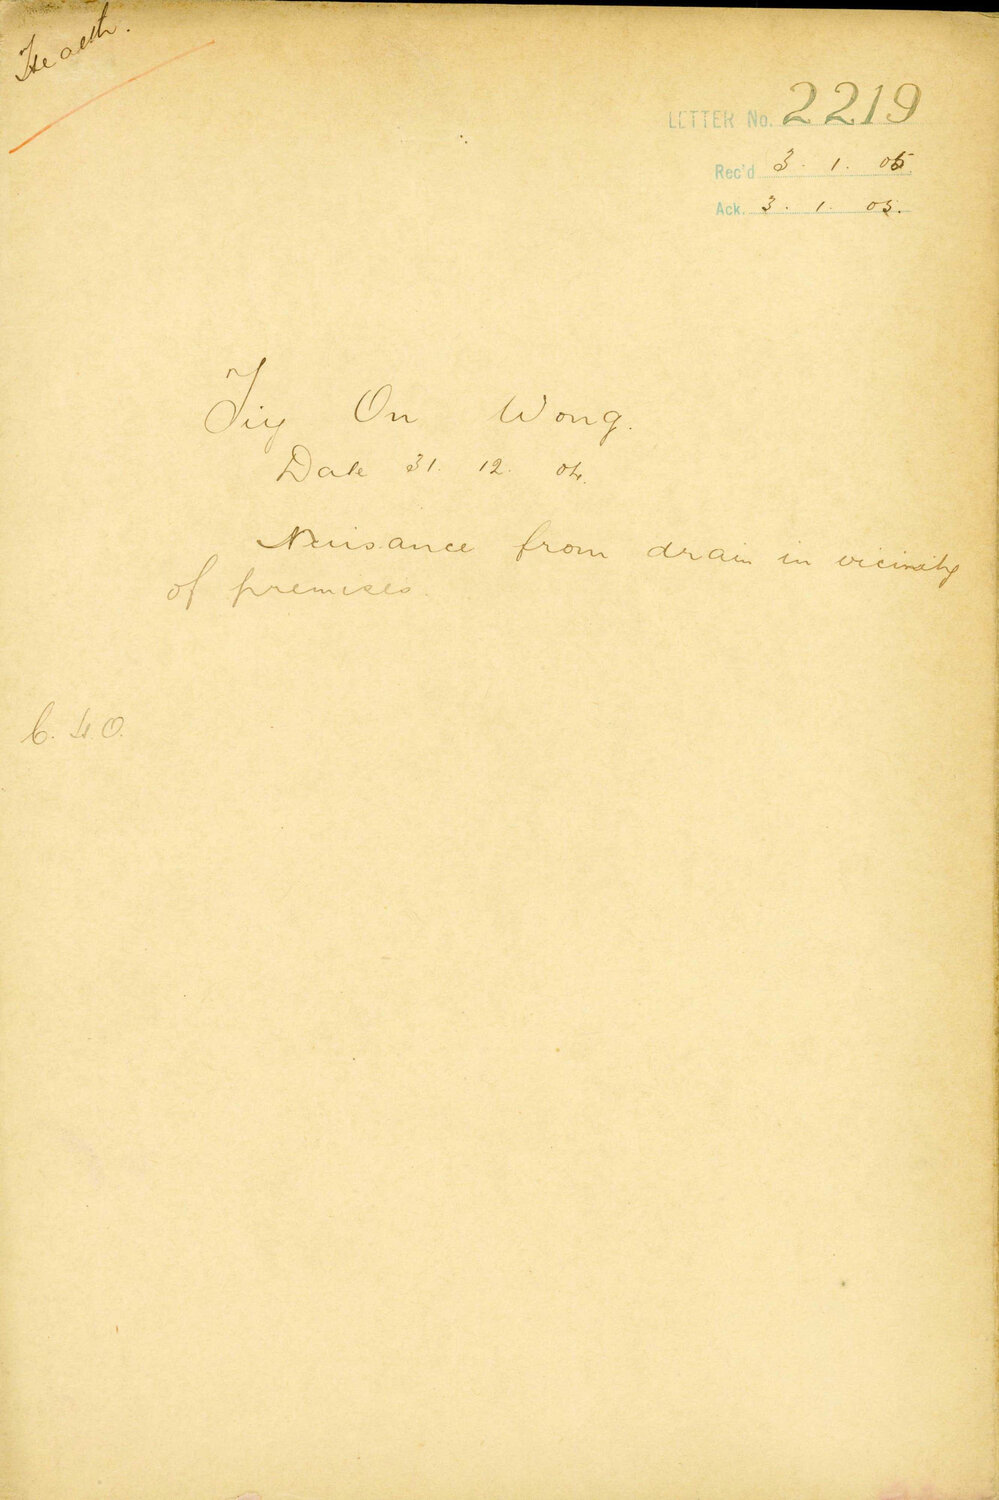 Health.
LETTER No. 2219
Rec'd 3. 1. 05.
Ack. 3. 1. 05.
Tiy On Wong.
Date 31. 12. 04.
Nuisance from drain in vicinity
of premises.
C. H. O.